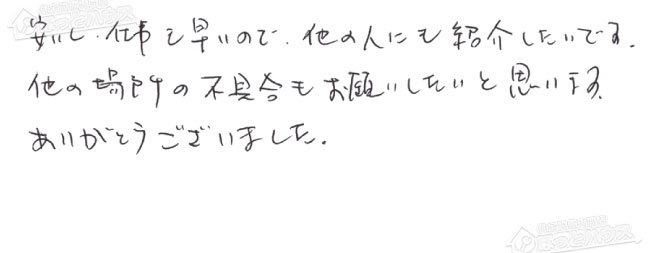 安いし、仕事も早いので、他の人にも紹介したいです。
他の場所の不具合もお願いしたいと思います。
ありがとうございました。